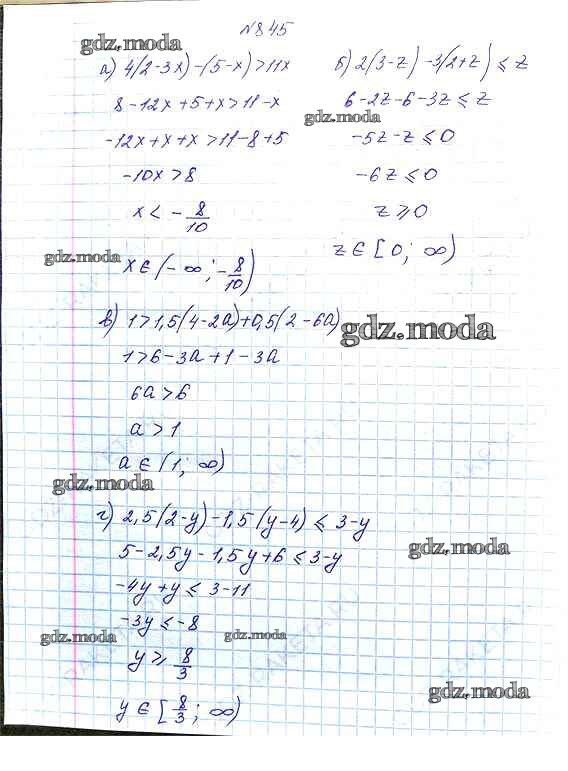 №845
gdz.moda
а) 4(2-3x)-(5-x)>11x
8-12x+5+x>11-x
-12x+x+x>11-8+5
-10x>8
x<-8/10
gdz.moda
x∈(-∞;-8/10)
б) 2(3-z)-3(2+z)≤z
6-2z-6-3z≤z
gdz.moda
-5z-z≤0
-6z≤0
z≥0
z∈[0;∞)
в) 1>1,5(4-2a)+0,5(2-6a)
gdz.moda
1>6-3a+1-3a
6a>6
a>1
a∈(1;∞)
gdz.moda
г) 2,5(2-y)-1,5(y-4)≤3-y
5-2,5y-1,5y+6≤3-y
gdz.moda
-4y+y≤3-11
-3y≤-8
gdz.moda
gdz.moda
y≥8/3
gdz.moda
y∈[8/3;∞)